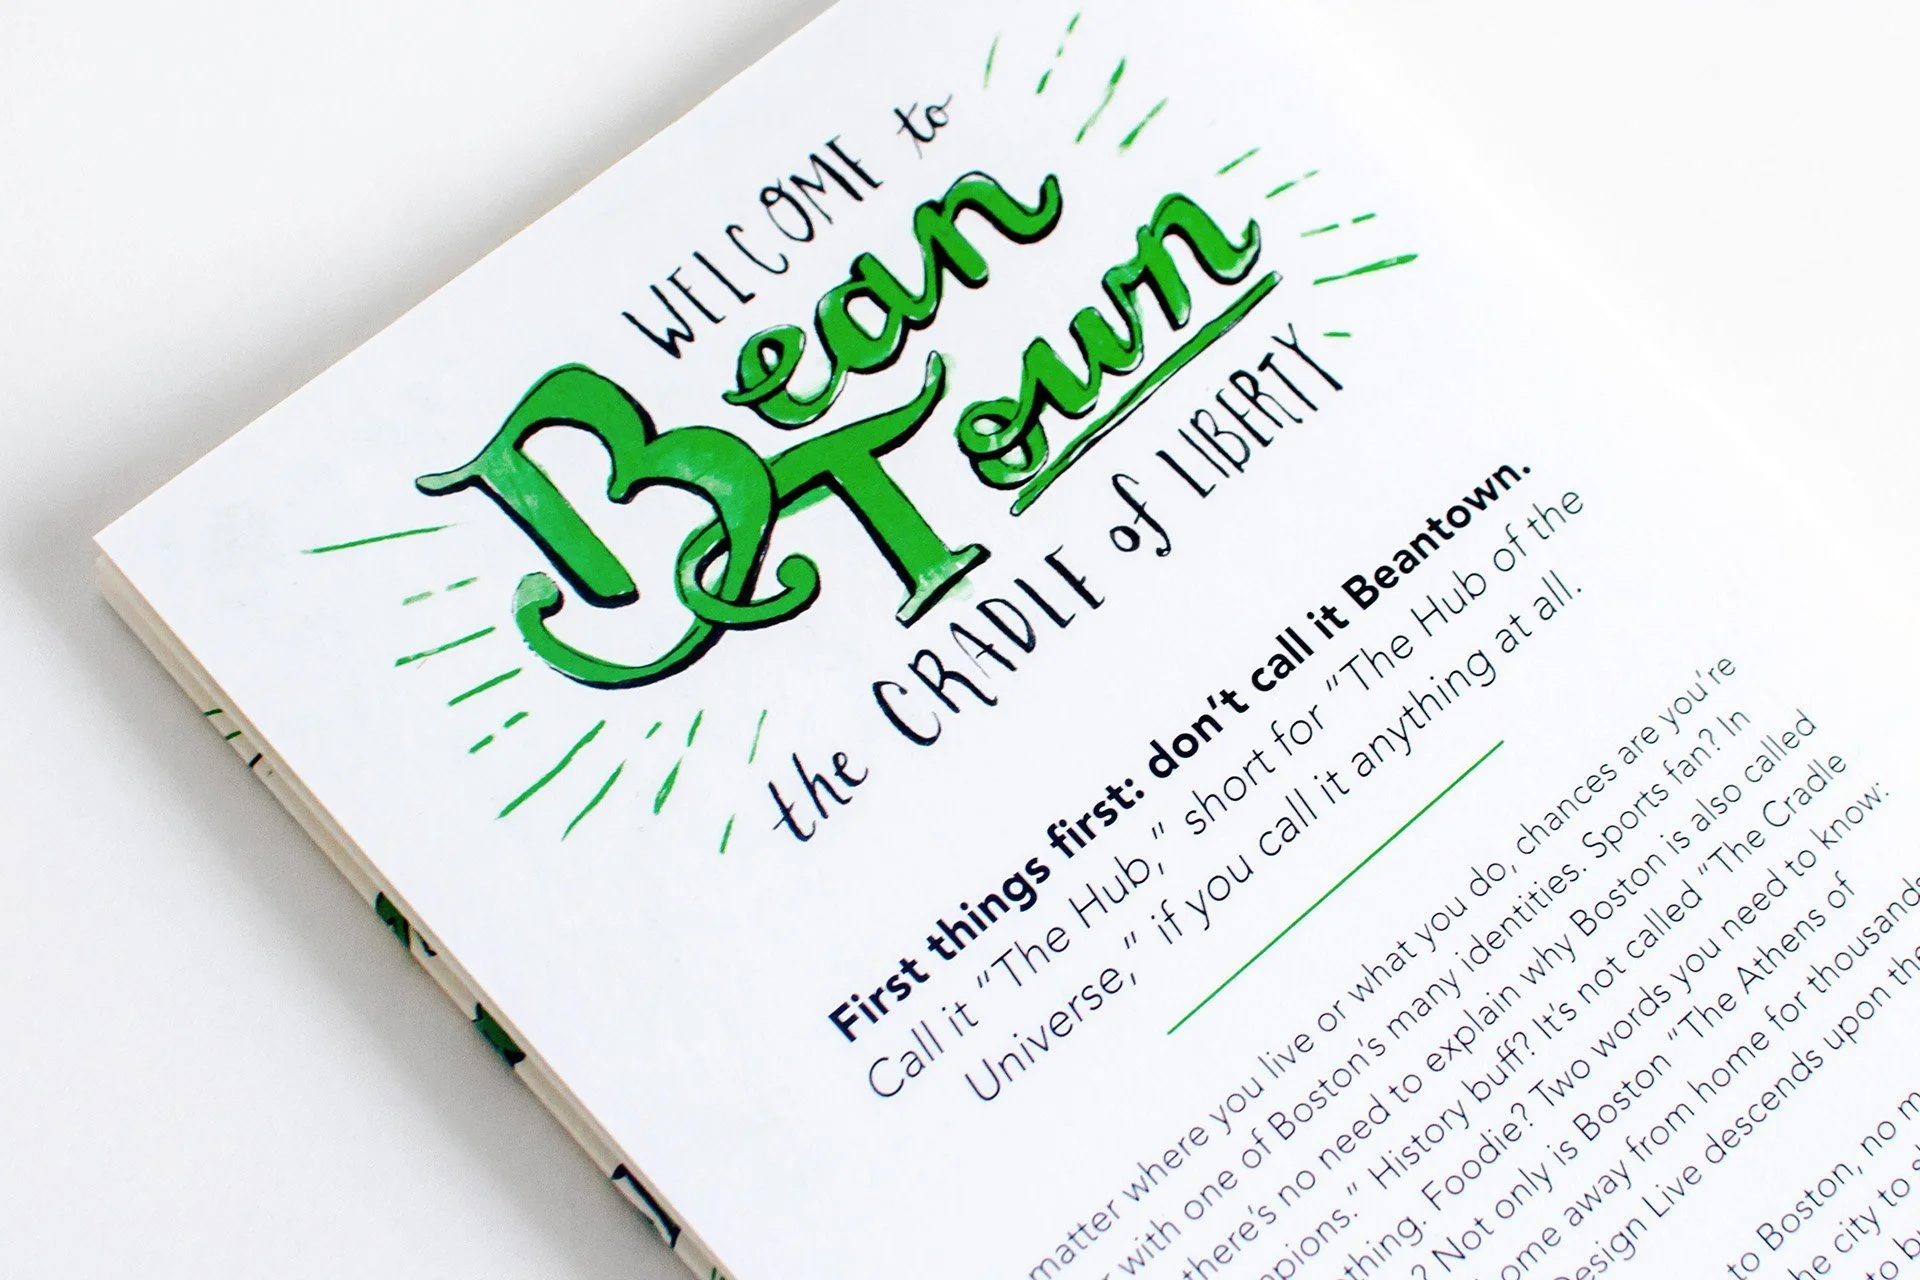 WELCOME to
Bean
Town
the CRADLE of LIBERTY
First things first: don't call it Beantown.
Call it "The Hub," short for "The Hub of the
Universe," if you call it anything at all.
matter where you live or what you do, chances are you're
with one of Boston's many identities. Sports fan? In
there's no need to explain why Boston is also called
." History buff? It's not called "The Cradle
thing. Foodie? Two words you need to know:
? Not only is Boston "The Athens of
ome away from home for thousands
Design Live descends upon the
to Boston, no m
he city to s
to bu